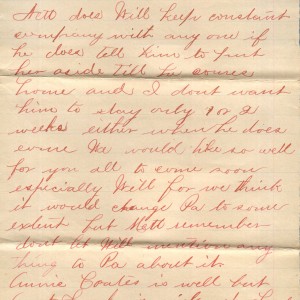 does Will keep constant
company with any one if
he does tell him to put
her aside till he comes
home and I dont want
him to stay only 1 or 2
weeks either when he does
come We would like so well
for you all to come soon
especially Will for we think
it would change Pa to some
extent but Mell remember
dont let Will mention any
thing to Pa about it
Annie Coates is well but